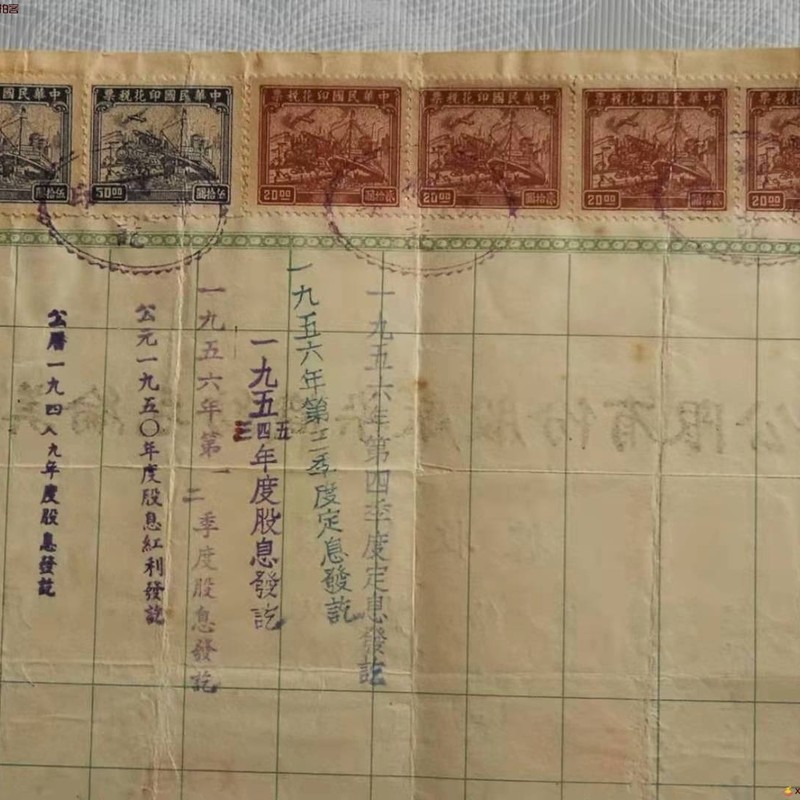 拍客
國印花稅票
伍拾圓
中華民國印花稅票
50.00
伍拾圓
中華民國印花稅票
20.00
貳拾圓
中華民國印花稅票
20.00
貳拾圓
中華民國印花稅票
20.00
貳拾圓
稅票
20.00
訖
公曆一九四八九年度股息發訖
公元一九五〇年度股息紅利發訖
一九五六年第一二季度股息發訖
一九五三四五年度股息發訖
一九五六年第三季度定息發訖
一九五六年第四季度定息發訖
公限有份股